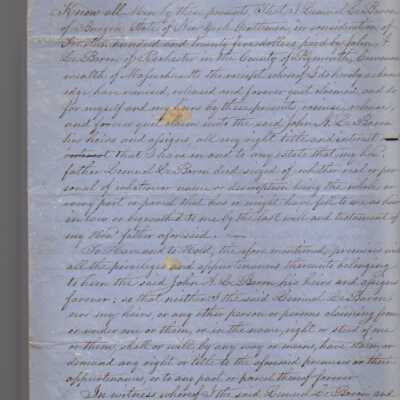 Know all Men by these presents That I Lemuel Le Baron
of Oregon State of New York Gentleman, in consideration of
hundred and twenty five dollars paid by John A.
Le Baron of Rochester in the County of Plymouth, Common
wealth of Massachusetts the receipt whereof I do hereby acknow
edge have remised, released and forever quit claimed, and do
for myself and my heirs by these presents, remise, release
and forever quit claim unto the said John A. Le Baron
his heirs and assigns, all my right title and interest
interest that I have in and to any estate that my hon.
father Lemuel Le Baron died seized of whether real or per
sonal of whatever name or description being the whole or
every part or parcel that has or might have fell to me as heir
in law or bequeathed to me by the last will and testament of
my Hon. father aforesaid.
To Have and to Hold, the afore mentioned premises with
all the privileges and appurtenances thereunto belonging
to him the said John A. Le Baron his heirs and assigns
forever; so that neither I the said Lemuel Le Baron
nor my heirs, or any other person or persons claiming from
or under me or them, or in the name, right or stead of me
or them, shall or will, by any way or means, have claim or
demand any right or title to the aforesaid premises or their
appurtenances, or to any part or parcel thereof forever.
In witness whereof I the said Lemuel Le Baron and